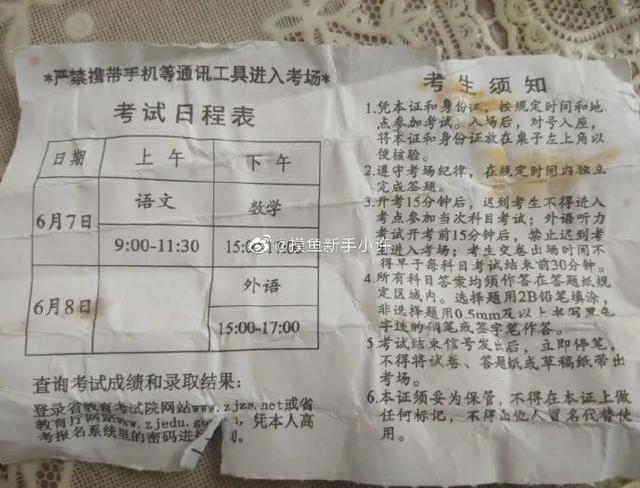 *严禁携带手机等通讯工具进入考场*
考试日程表
日期 上午 下午
6月7日 语文 数学
9:00-11:30 15:00
6月8日 外语
15:00-17:00
查询考试成绩和录取结果:
登录省教育考试院网站www.zjzs.net或省
教育厅网站www.zjedu.go 凭本人高
考报名系统里的密码进行
考生须知
1.凭本证和身份证,按规定时间和地
点参加考试。入场后,对号入座,
将本证和身份证放在桌子左上角以
便核验。
2.遵守考场纪律,在规定时间内独立
完成答题。
3.开考15分钟后,迟到考生不得进入
考点参加当次科目考试;外语听力
考试开考前15分钟后,禁止迟到考
生进入考场;考生交卷出场时间不
得早于每科目考试结束前30分钟。
4.所有科目答案均须作答在答题纸规
定区域内。选择题用2B铅笔填涂,
非选择题用0.5mm及以上书写黑色
字迹的钢笔或签字笔作答。
5.考试结束信号发出后,立即停笔,
不得将试卷、答题纸或草稿纸带出
考场。
6.本证须妥为保管,不得在本证上做
任何标记,不得由他人冒名代替使
用。
@摸鱼新手小连